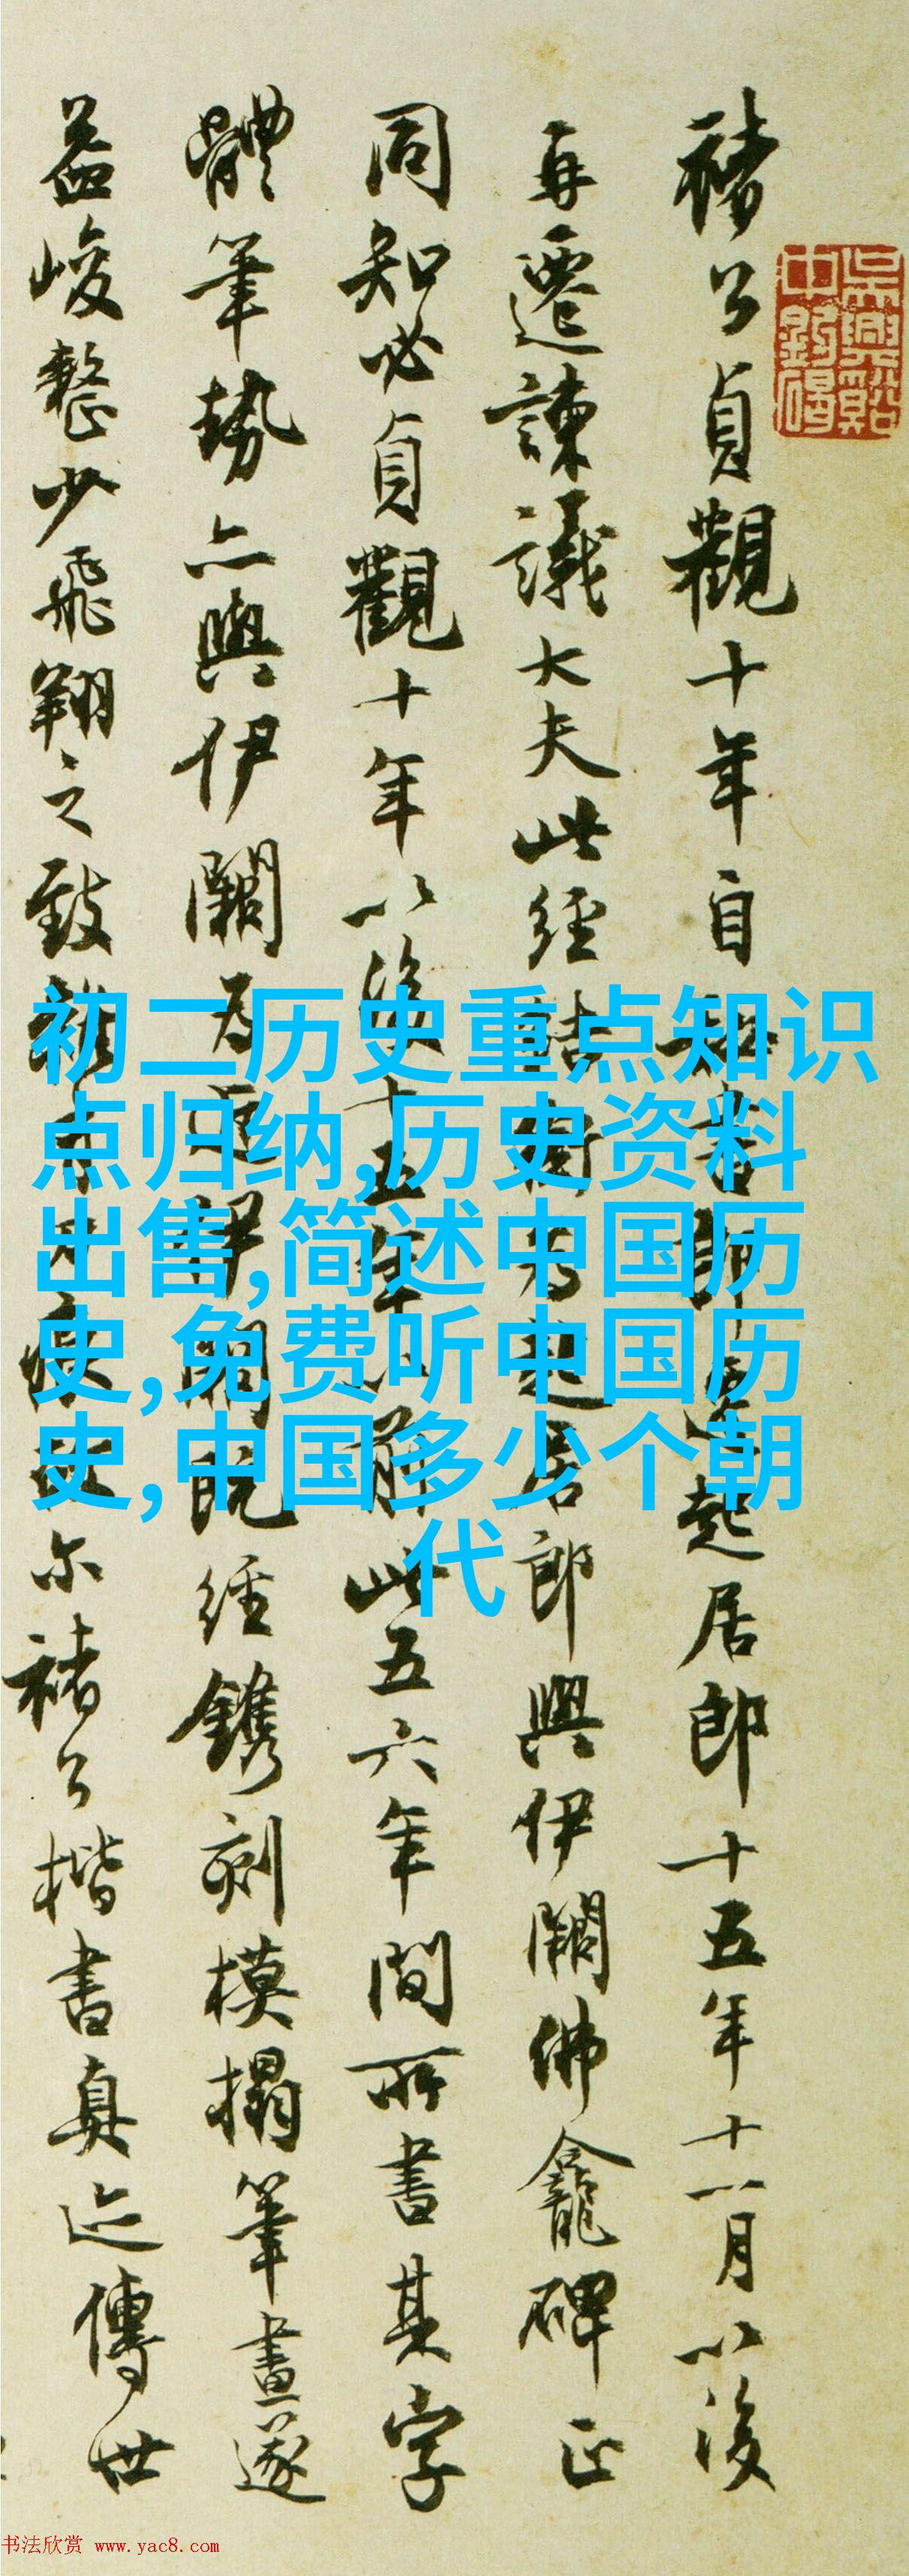 褚公貞觀十年自
書郎
起居郎十五年十一月以後
再遷諫議大夫此經
起居郎與伊闕佛龕碑正
同知必貞觀十年以後十五年以前此五六年間所書其字
體筆勢亦與伊闕
既經鐫刻模搨筆畫遂
益峻整少飛翔之致
尔褚公楷書真迹傳世
初二历史重点知识
点归纳,历史资料
出售,简述中国历
史,免费听中国历
史,中国多少个朝
代
书法欣赏 www.yac8.com